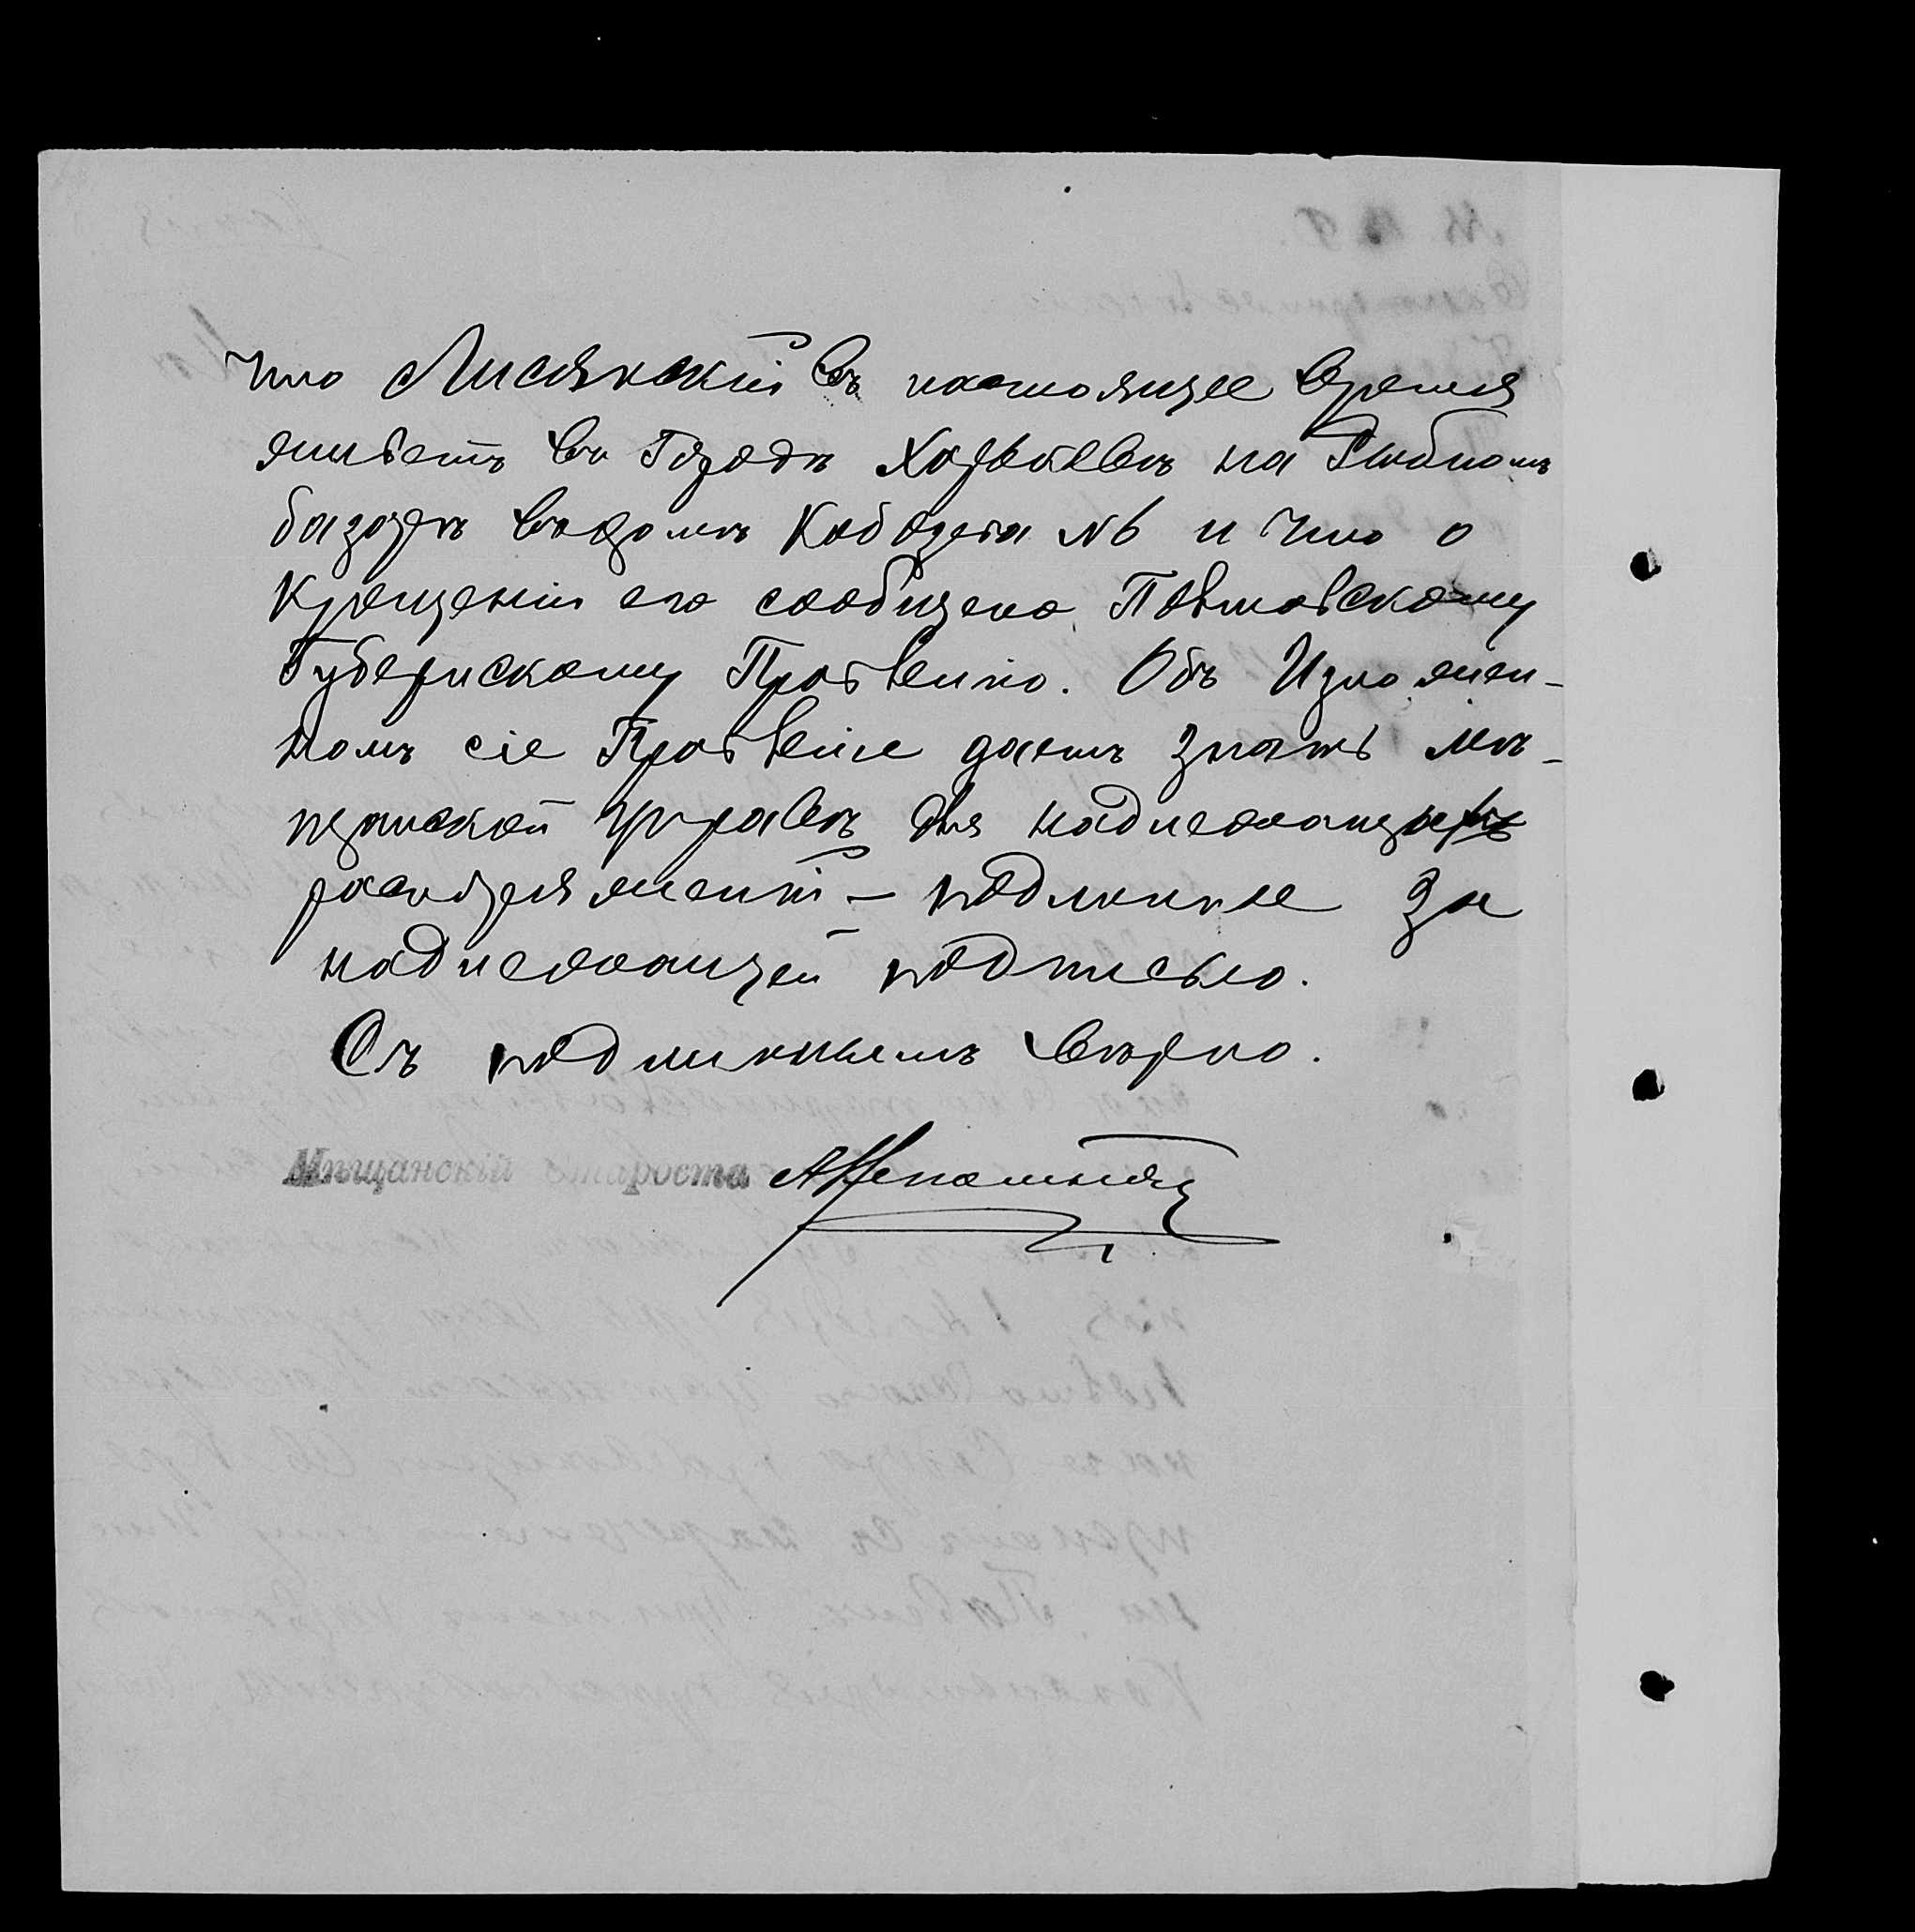 что Лисянскій въ настоящее время
живетъ въ Городѣ Харьковѣ на Рыбномъ
базарѣ въ домѣ № 6 и что о
крещеніи его сообщено Полтавскому
Губернскому Правленію. Объ Изложен-
номъ сіе Правленіе даетъ знать Мѣ-
щанской управѣ для надлежащихъ
распоряженій – подлинное за
надлежащей подписью.
Съ подлиннымъ вѣрно.
Мѣщанскій Староста